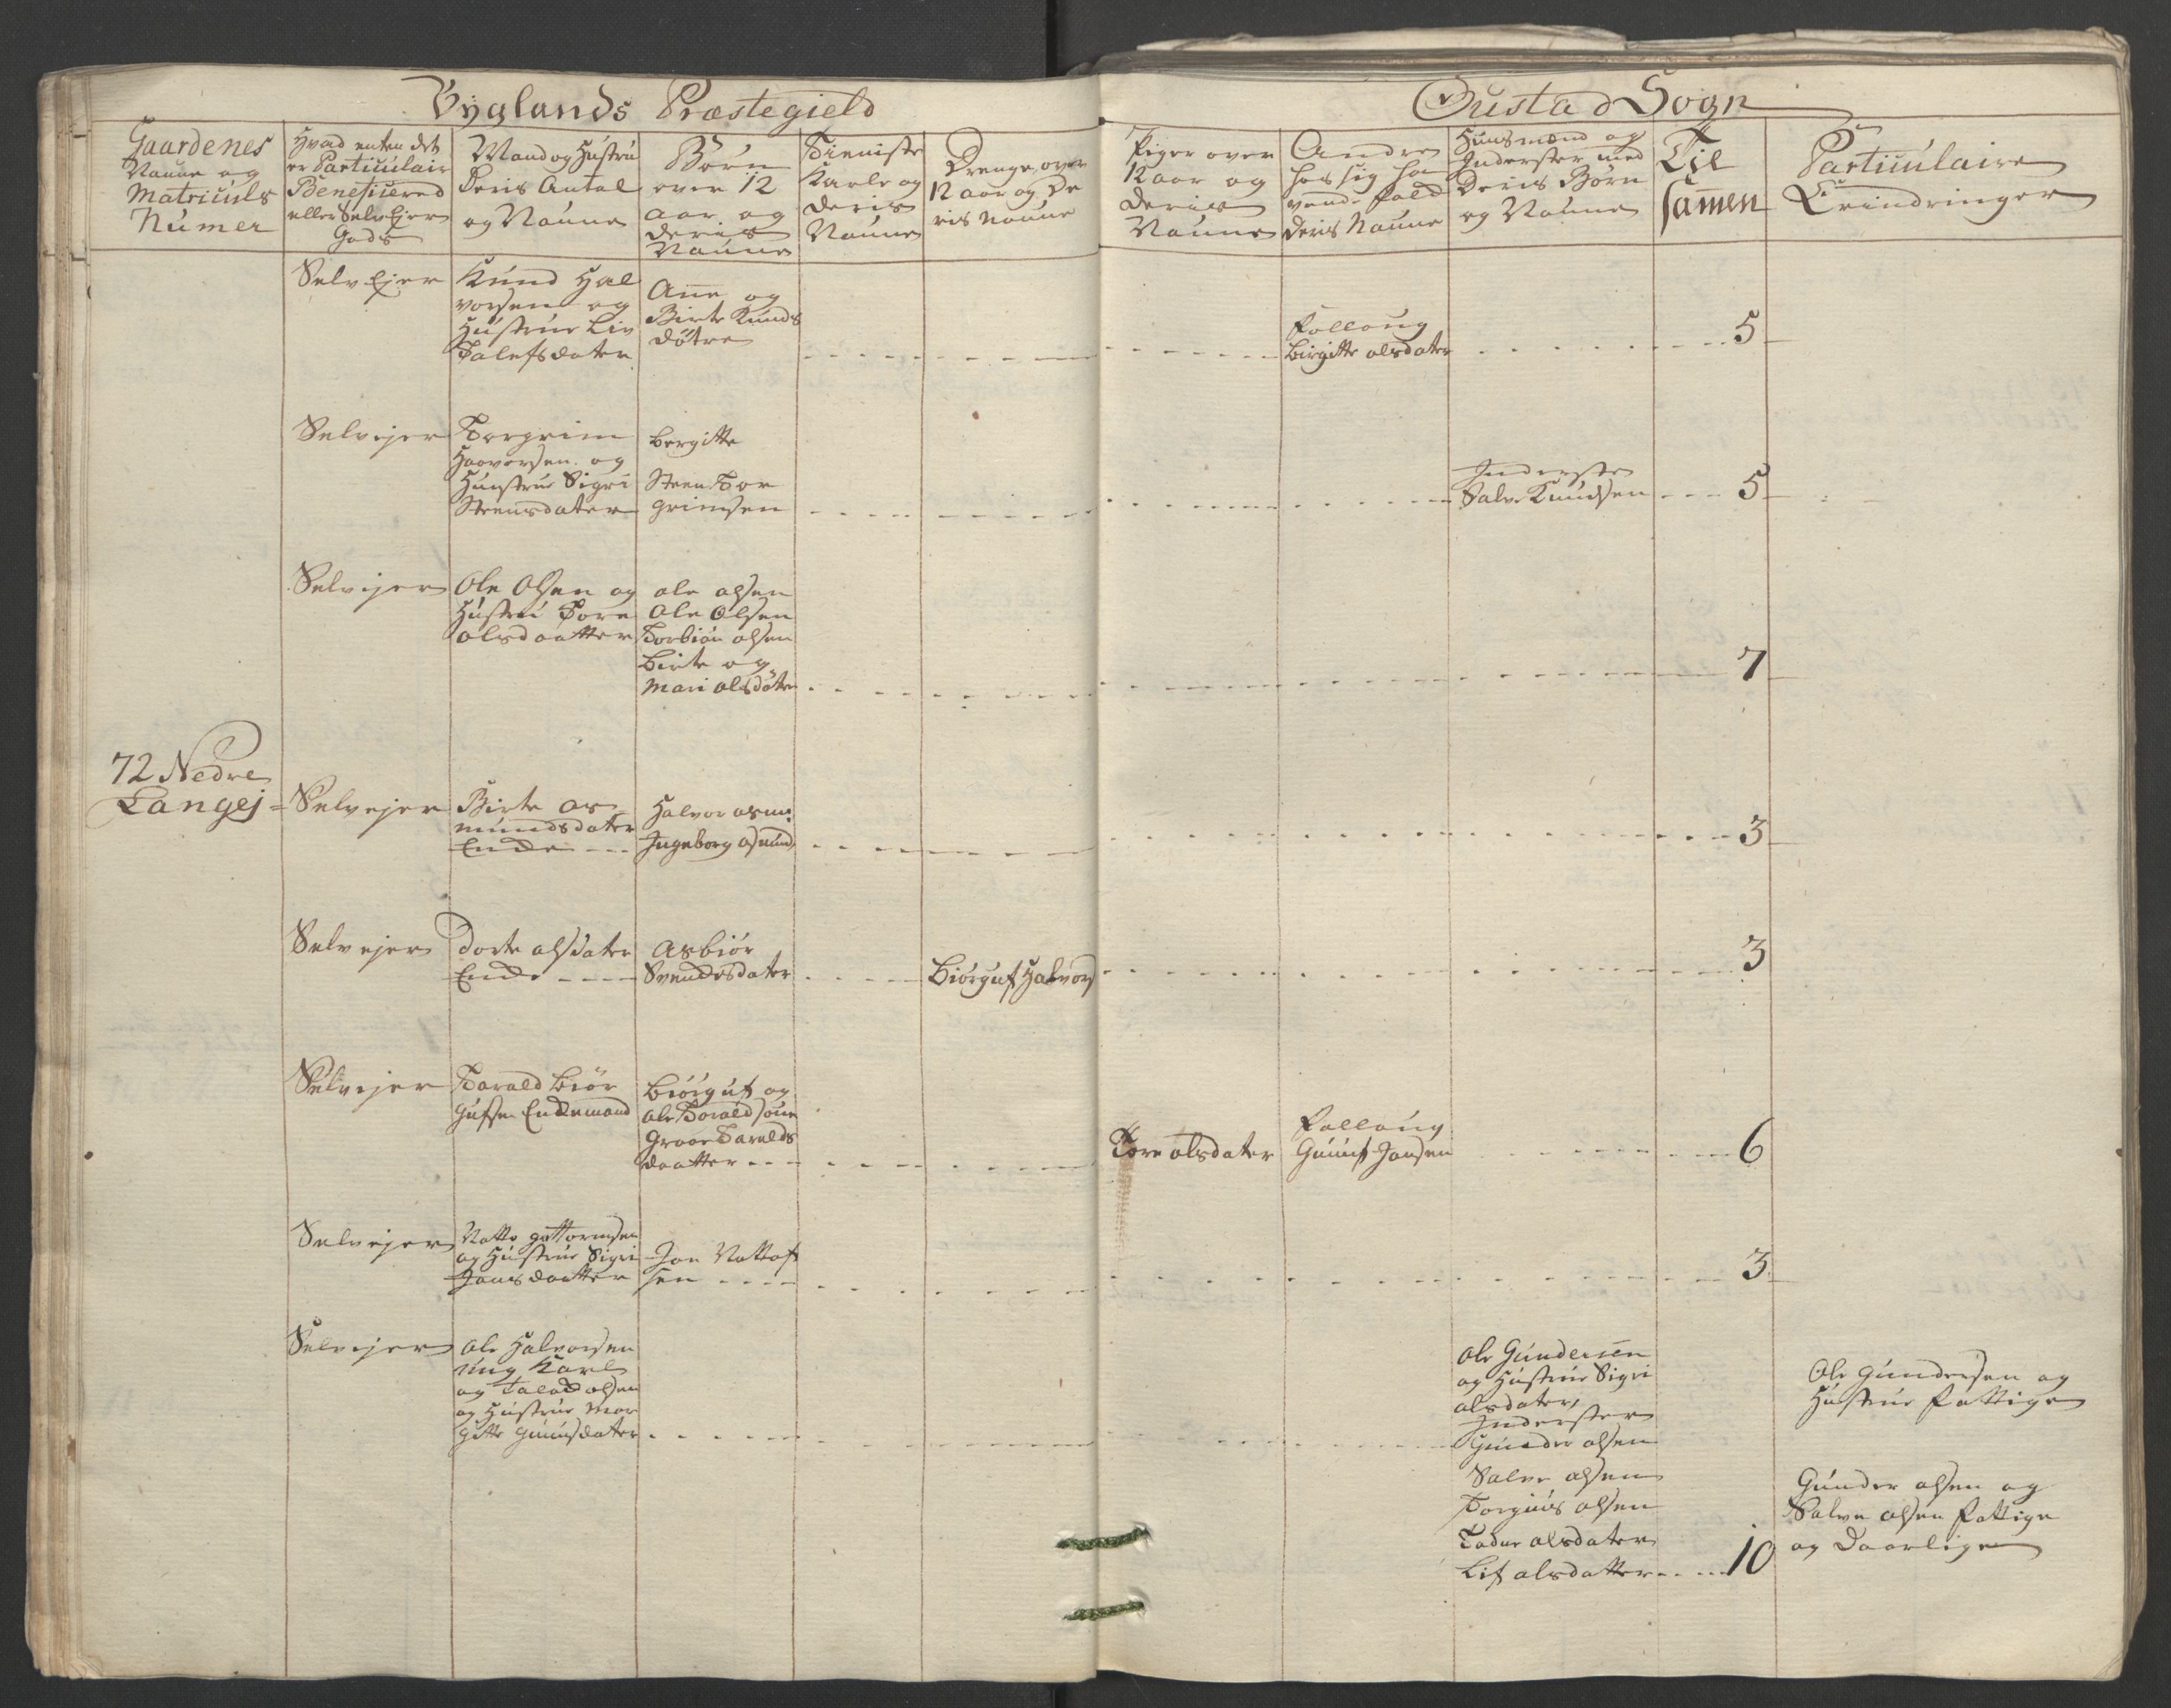 Byglands Præstegield
Oustad Sogn
Gaardenes
Naune og
Matriculs
Numer
Hvad enten det
er Particulair
Beneficered
eller SelvEjer
Gods
Mand og Hustru
Deris Antal
og Naune
Børn
over 12
aar og
deris
Naune
Tieniste
Karle og
deris
Naune
Drenge over
12 aar og De
ris Naune
Piger over
12 aar og
deris
Naune
Andre
hos sig ha
vende Fold
deris Naune
Huusmænd og
Inderster med
Deris Børn
og Naune
Til
samen
Particulaire
Erindringer
SelvEjer
Knud Hal
vorsen og
Hustrue Liv
Talefsdater
Anne og
Birte Knuds
døtre
Follaug
Birgitte olsdater
5
Selvejer
Torgrim
Haavorsen og
Huustrue Sigri
Steensdater
Bergitte
Steen Tor
grimsen
Inderste
Salve Knudsen
5
Selvejer
Ole Olsen og
Hustru Tore
olsdaatter
ole olsen
Ole Olsen
Torbiøn olsen
Birte og
Mari olsdøter
7
72 Nedre
Langej
Selvejer
Birte as
mundsdater
Enke
Halvor asm:
Ingeborg asmund
3
Selvejer
Dorte olsdater
Enke
Asbiør
Svendesdater
Biørguf Halvors
3
Selvejer
Tarald Biør
gufsen Enkemand
Biørguf og
ole Torald sønne
Graae Taralds
daatter
Tore olsdater
Follaug
Gunuf Jonsen
6
Selvejer
Natto gottormsen
og Hustrue Sigri
Jonsdaatter
Jon Nottof
sen
3
Selvejer
ole Halvorsen
ung Karl
og Talod olsen
og Hustrue Mar
gitte Gunufsdater
ole Gundersen
og Hustrue Sigri
olsdater,
Inderster
Gunder olsen
Salve olsen
Torgius olsen
Tadne olsdater
Lif olsdatter
10
Ole Gundersen og
Hustrue Fattige
Gunder olsen og
Salve olsen Fattige
og Daarlige